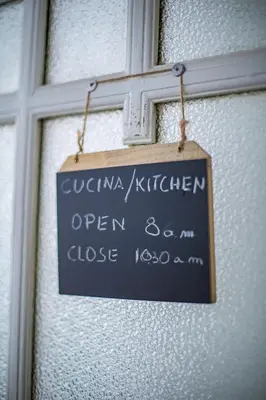 CUCINA/KITCHEN
OPEN 8 a.m
CLOSE 10.30 a m